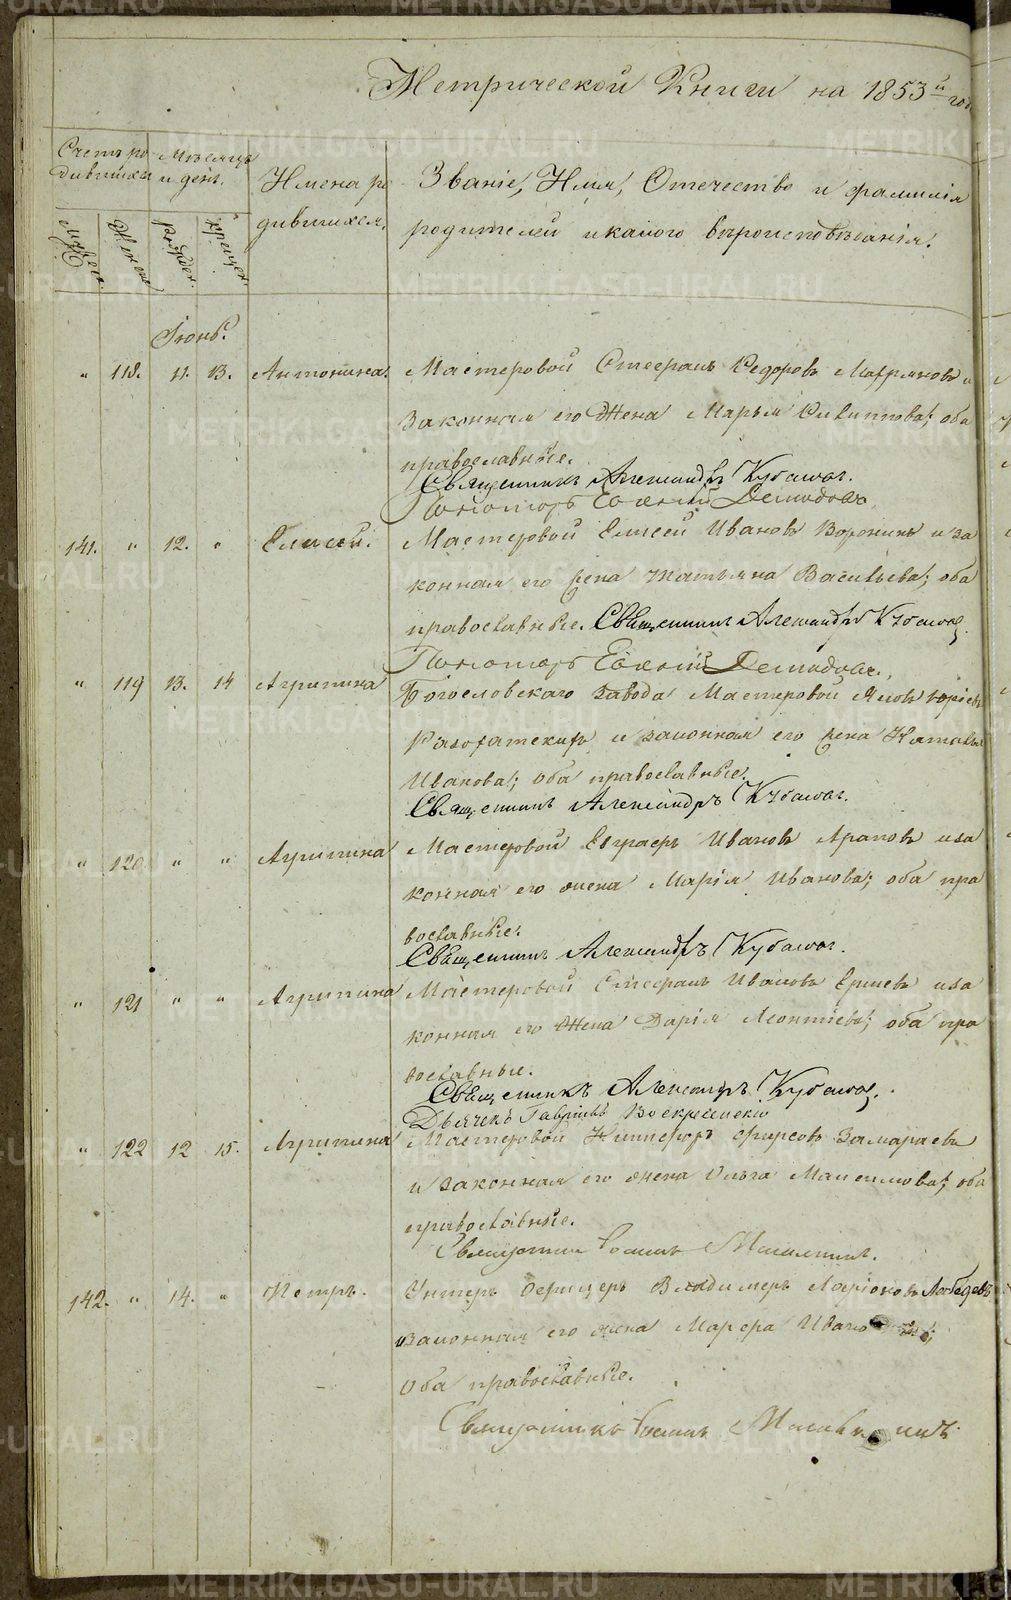 Метрической Книги на 1853й год
Счетъ ро- Мѣсяцъ
дившихся и день.
Имена ро-
дившихся.
Званіе, Имя, Отечество и фамилія
родителей и какого вѣроисповѣданія.
Мужеск. Женск. рожден. крещен.
Іюнь.
" 118. 11. 13. Антонина. Мастеровой Стефанъ Ѳедоровъ и
законная его Жена Марья Филиппова; оба
православные.
Священникъ Александръ
Пономарь Демидовъ
141. " 12. " Елисей. Мастеровой Елисей Ивановъ Воронинъ и за
конная его жена Татьяна Васильева; оба
православные. Священникъ Александръ
Пономарь Демидовъ
" 119 13. 14 Агрипина Богословскаго завода Мастеровой
и законная его жена Наталья
Иванова; оба православные.
Священникъ Александръ
" 120 " " Агрипина Мастеровой Евграфъ Ивановъ Араповъ и за
конная его жена Марія Иванова; оба пра
вославные.
Священникъ Александръ
" 121 " " Агрипина Мастеровой Стефанъ Ивановъ Ершевъ и за
конная его Жена Дарія Леонтіева; оба пра
вославные.
Священникъ Александръ
Дьячекъ Гавріилъ Воскресенскій
" 122 12 15. Агрипина Мастеровой Никифоръ Фирсовъ Замараевъ
и законная его жена Ольга Максимова; оба
православные.
Священникъ Іоаннъ
142. " 14. " Петръ. Унтеръ Офицеръ Владимеръ Ларіоновъ Лебедевъ
и законная его жена Марфа
Оба православные.
Священникъ Іоаннъ
METRIKI.GASO-URAL.RU